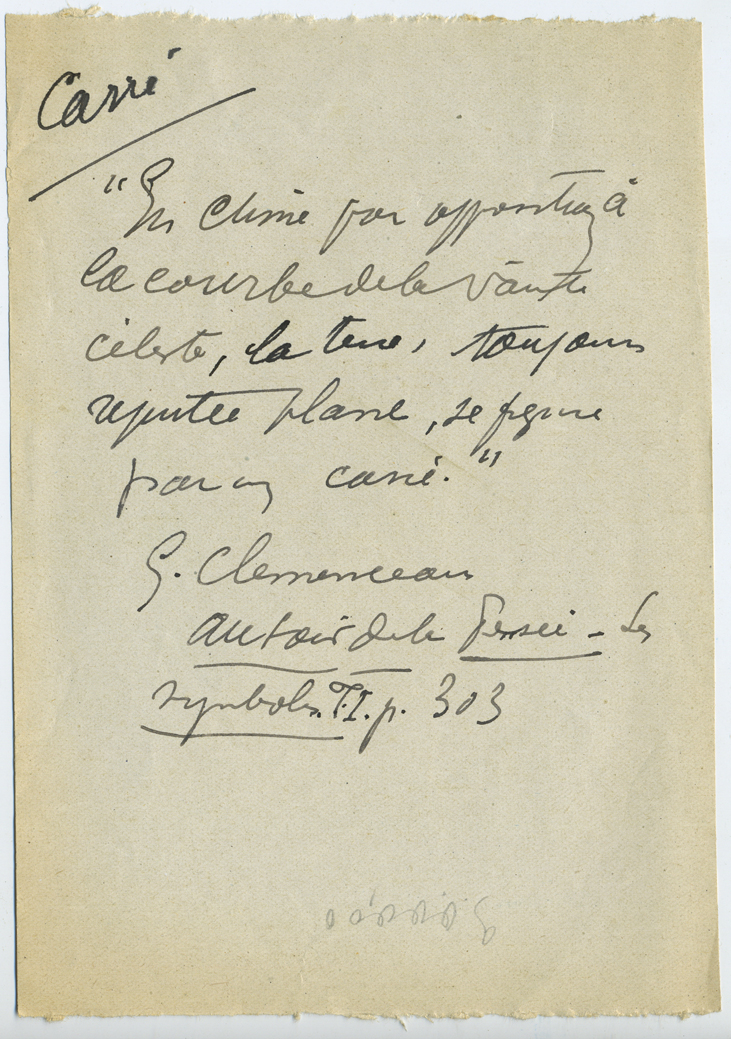 Carré
"En Chine par opposition à
la courbe de la voûte
céleste, la terre, toujours
reputée plane, se figure
par un carré."
G. Clemenceau
Au soir de la Pensée - Les
symboles. T.I. p. 303